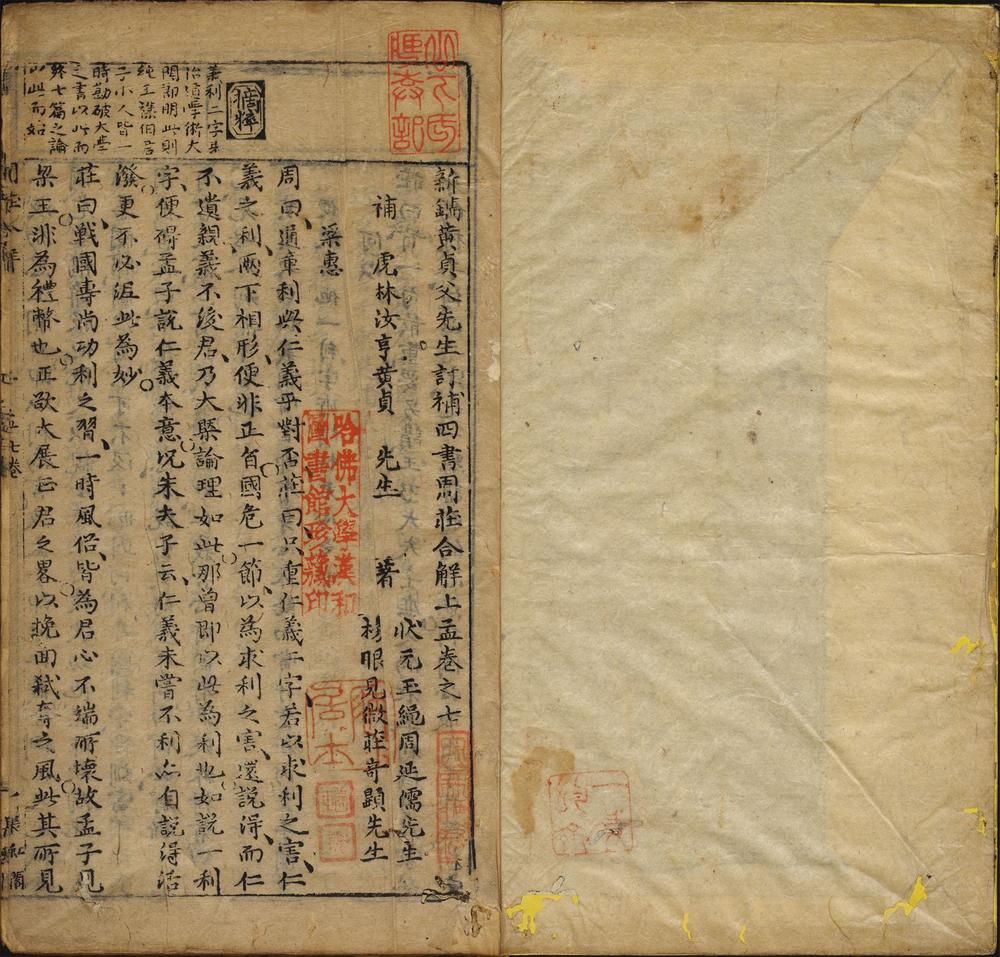 新鐫黄貞父先生訂補四書周莊合解上孟卷之七
狀元玉繩周延儒先生
補 虎林汝亨黄貞 先生 著
榜眼見微莊奇顯先生
梁惠
周曰通章利與仁義乎對否莊曰只重仁義二字若以求利之害仁
義之利两下相形便非正旨國危一節以為求利之害還說淂而仁
不遺親義不後君乃大槩論理如此那曾即以此為利也如說一利
字便碍孟子説仁義本意况朱夫子云仁義未嘗不利亦自説淂活
潑更不必泥此為妙
莊曰戰國專尚功利之習一時風俗皆為君心不端所壞故孟子見
梁王非為禮幣也正欲大展正君之畧以挽囬弒奪之風此其所見
義利二字
治道學術大
関即明此則
時勘破大學
之書以此而
終七篇之論
以此而始
哈佛大學漢和
圖書館珍藏印